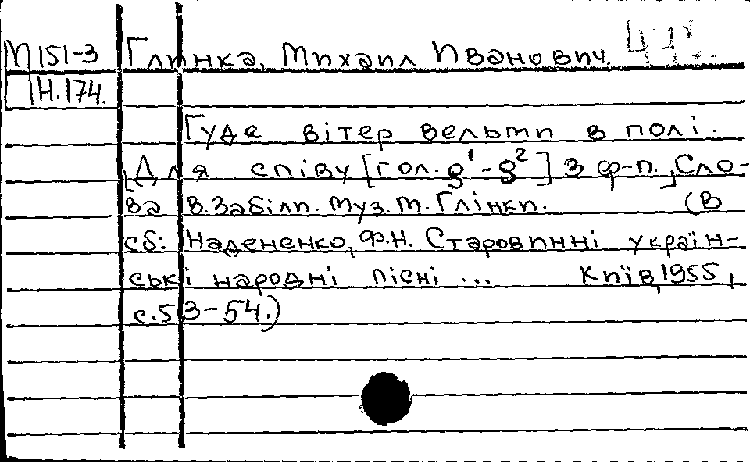 М151-3 Глинка, Михаил Иванович.
Н.174.
Гуде вітер вельми в полі.
[Для співу [гол. g¹-g²] з ф-п.] Сло-
ва В. Забіли. Муз. М. Глінки. (В
сб: Надененко, Ф.Н. Старовинні україн-
ські народні пісні ... Київ, 1955,
с.53-54.)